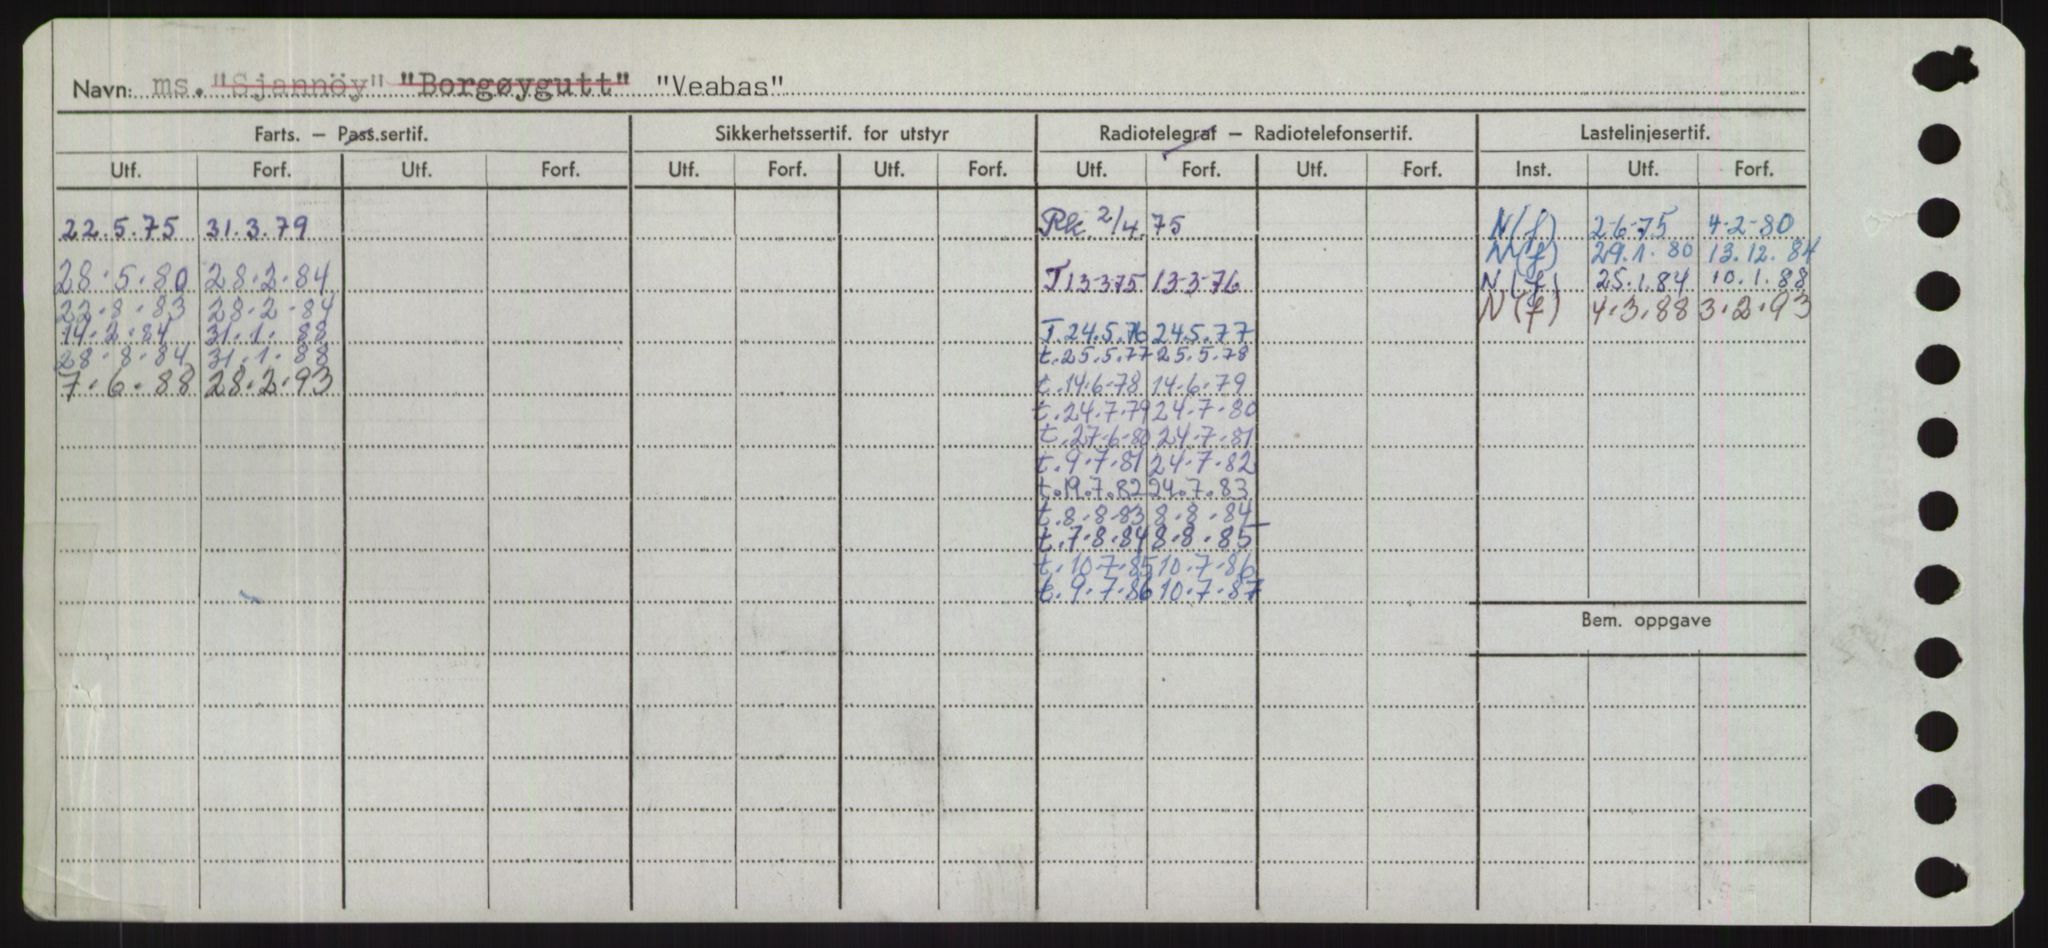 Navn: ms. "Sjannöy" "Borgøygutt" "Veabas"
Farts. – Pass.sertif. Sikkerhetssertif. for utstyr Radiotelegraf – Radiotelefonsertif. Lastelinjesertif.
Utf. Forf. Utf. Forf. Utf. Forf. Utf. Forf. Utf. Forf. Utf. Forf. Inst. Utf. Forf.
22.5.75 31.3.79 Rk. 2/4.75 N(f) 2-6-75 4-2-80
N(f) 29.1.80 13.12.84
28.5.80 28.2.84 T 13-3-75 13-3-76 N(f) 25.1.84 10.1.88
22.8.83 28.2.84 N(f) 4.3.88 3.2.93
14.2.84 31.1.88 T.24.5.76 24.5.77
28.8.84 31.1.88 t.25.5.77 25.5.78
7.6.88 28.2.93 t.14.6-78 14.6.79
t.24.7.79 24.7.80
t.27-6-80 24.7.81
t.9.7.81 24.7.82
t.19.7.82 24.7.83
t.8.8.83 8.8.84
t.7.8.84 8.8.85
t.10.7.85 10.7.86
t.9.7.86 10.7.87
Bem. oppgave